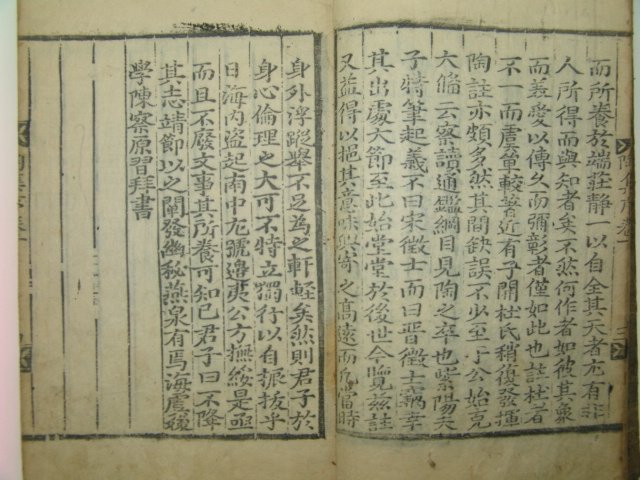 而所養於端莊静一以自全其天者尤有非
人所得而與知者矣不然何作者如彼其衆
而義愛以傳久而彌彰者僅如此也註杜者
不一而虞簒較著近有子開杜氏稍復發揮
陶註亦頗多然其間缺誤不少至于公始克
大備云察讀通鑑綱目見陶之卒也紫陽夫
子特筆起義不曰宋徵士而曰晋徵士竊幸
其出處大節至此始堂堂於後世今覽兹註
又益得以挹其意味與寄之高遠而爲當時
身外浮蹤舉不足爲之軒輊矣然則君子於
身心倫理之大可不特立獨行以自振抜乎
日海内盗起南中尤號邉夷公方撫綏是亟
而且不廢文事其所養可知已君子曰不降
其志靖節以之闡發幽秘燕泉有焉海虞後
學陳察原習拜書